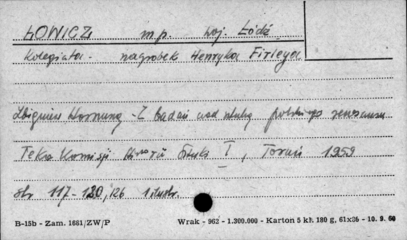 ŁOWICZ m.p. woj. Łódź
Kolegiata - nagrobek Henryka Firleya
Zbigniew Hornung - Z badań nad sztuką polskiego renesansu
Teka Komisji Hist. Sztuki I, Toruń 1959
str 117-120, Rb 1 ilustr.
B-15b - Zam. 1661/ZW/P Wrak - 962 - 1.200.000 - Karton 5 kl. 180 g, 61x26 - 10. 9. 60